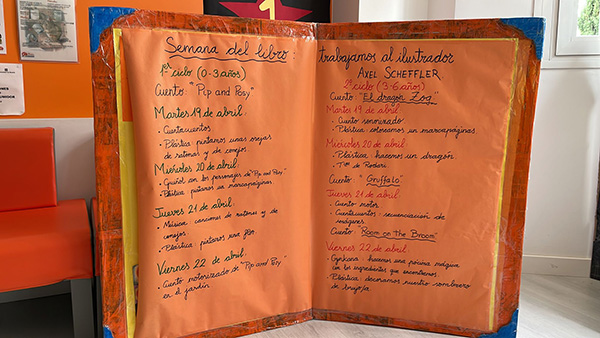 1
Semana del libro:
1er ciclo (0-3 años)
Cuento: "Pip and Posy"
Martes 19 de abril:
• Cuentacuentos
• Plástica: pintamos unas orejas
de ratones y de conejos.
Miércoles 20 de abril:
• Guiñol con los personajes de "Pip and Posy"
• Plástica: pintamos un marcapáginas.
Jueves 21 de abril:
• Música: canciones de ratones y de
conejos.
• Plástica: pintamos una flor.
Viernes 22 de abril:
• Cuento motorizado de "Pip and Posy"
en el jardín.
trabajamos al ilustrador
AXEL SCHEFFLER.
2º ciclo (3-6 años)
Cuento: "El dragón Zog"
Martes 19 de abril:
• Cuento sonorizado
• Plástica: coloreamos un marcapáginas
Miércoles 20 de abril:
• Plástica: hacemos un dragón
• Tira de Rodari.
Cuento: "Gruffalo"
Jueves 21 de abril:
• Cuento motor
• Cuentacuentos: secuenciación de
imágenes
Cuento: "Room on the Broom"
Viernes 22 de abril:
• Gymkana: hacemos una pócima mágica
con los ingredientes que encontremos.
• Plástica: decoramos nuestro sombrero
de bruja/o